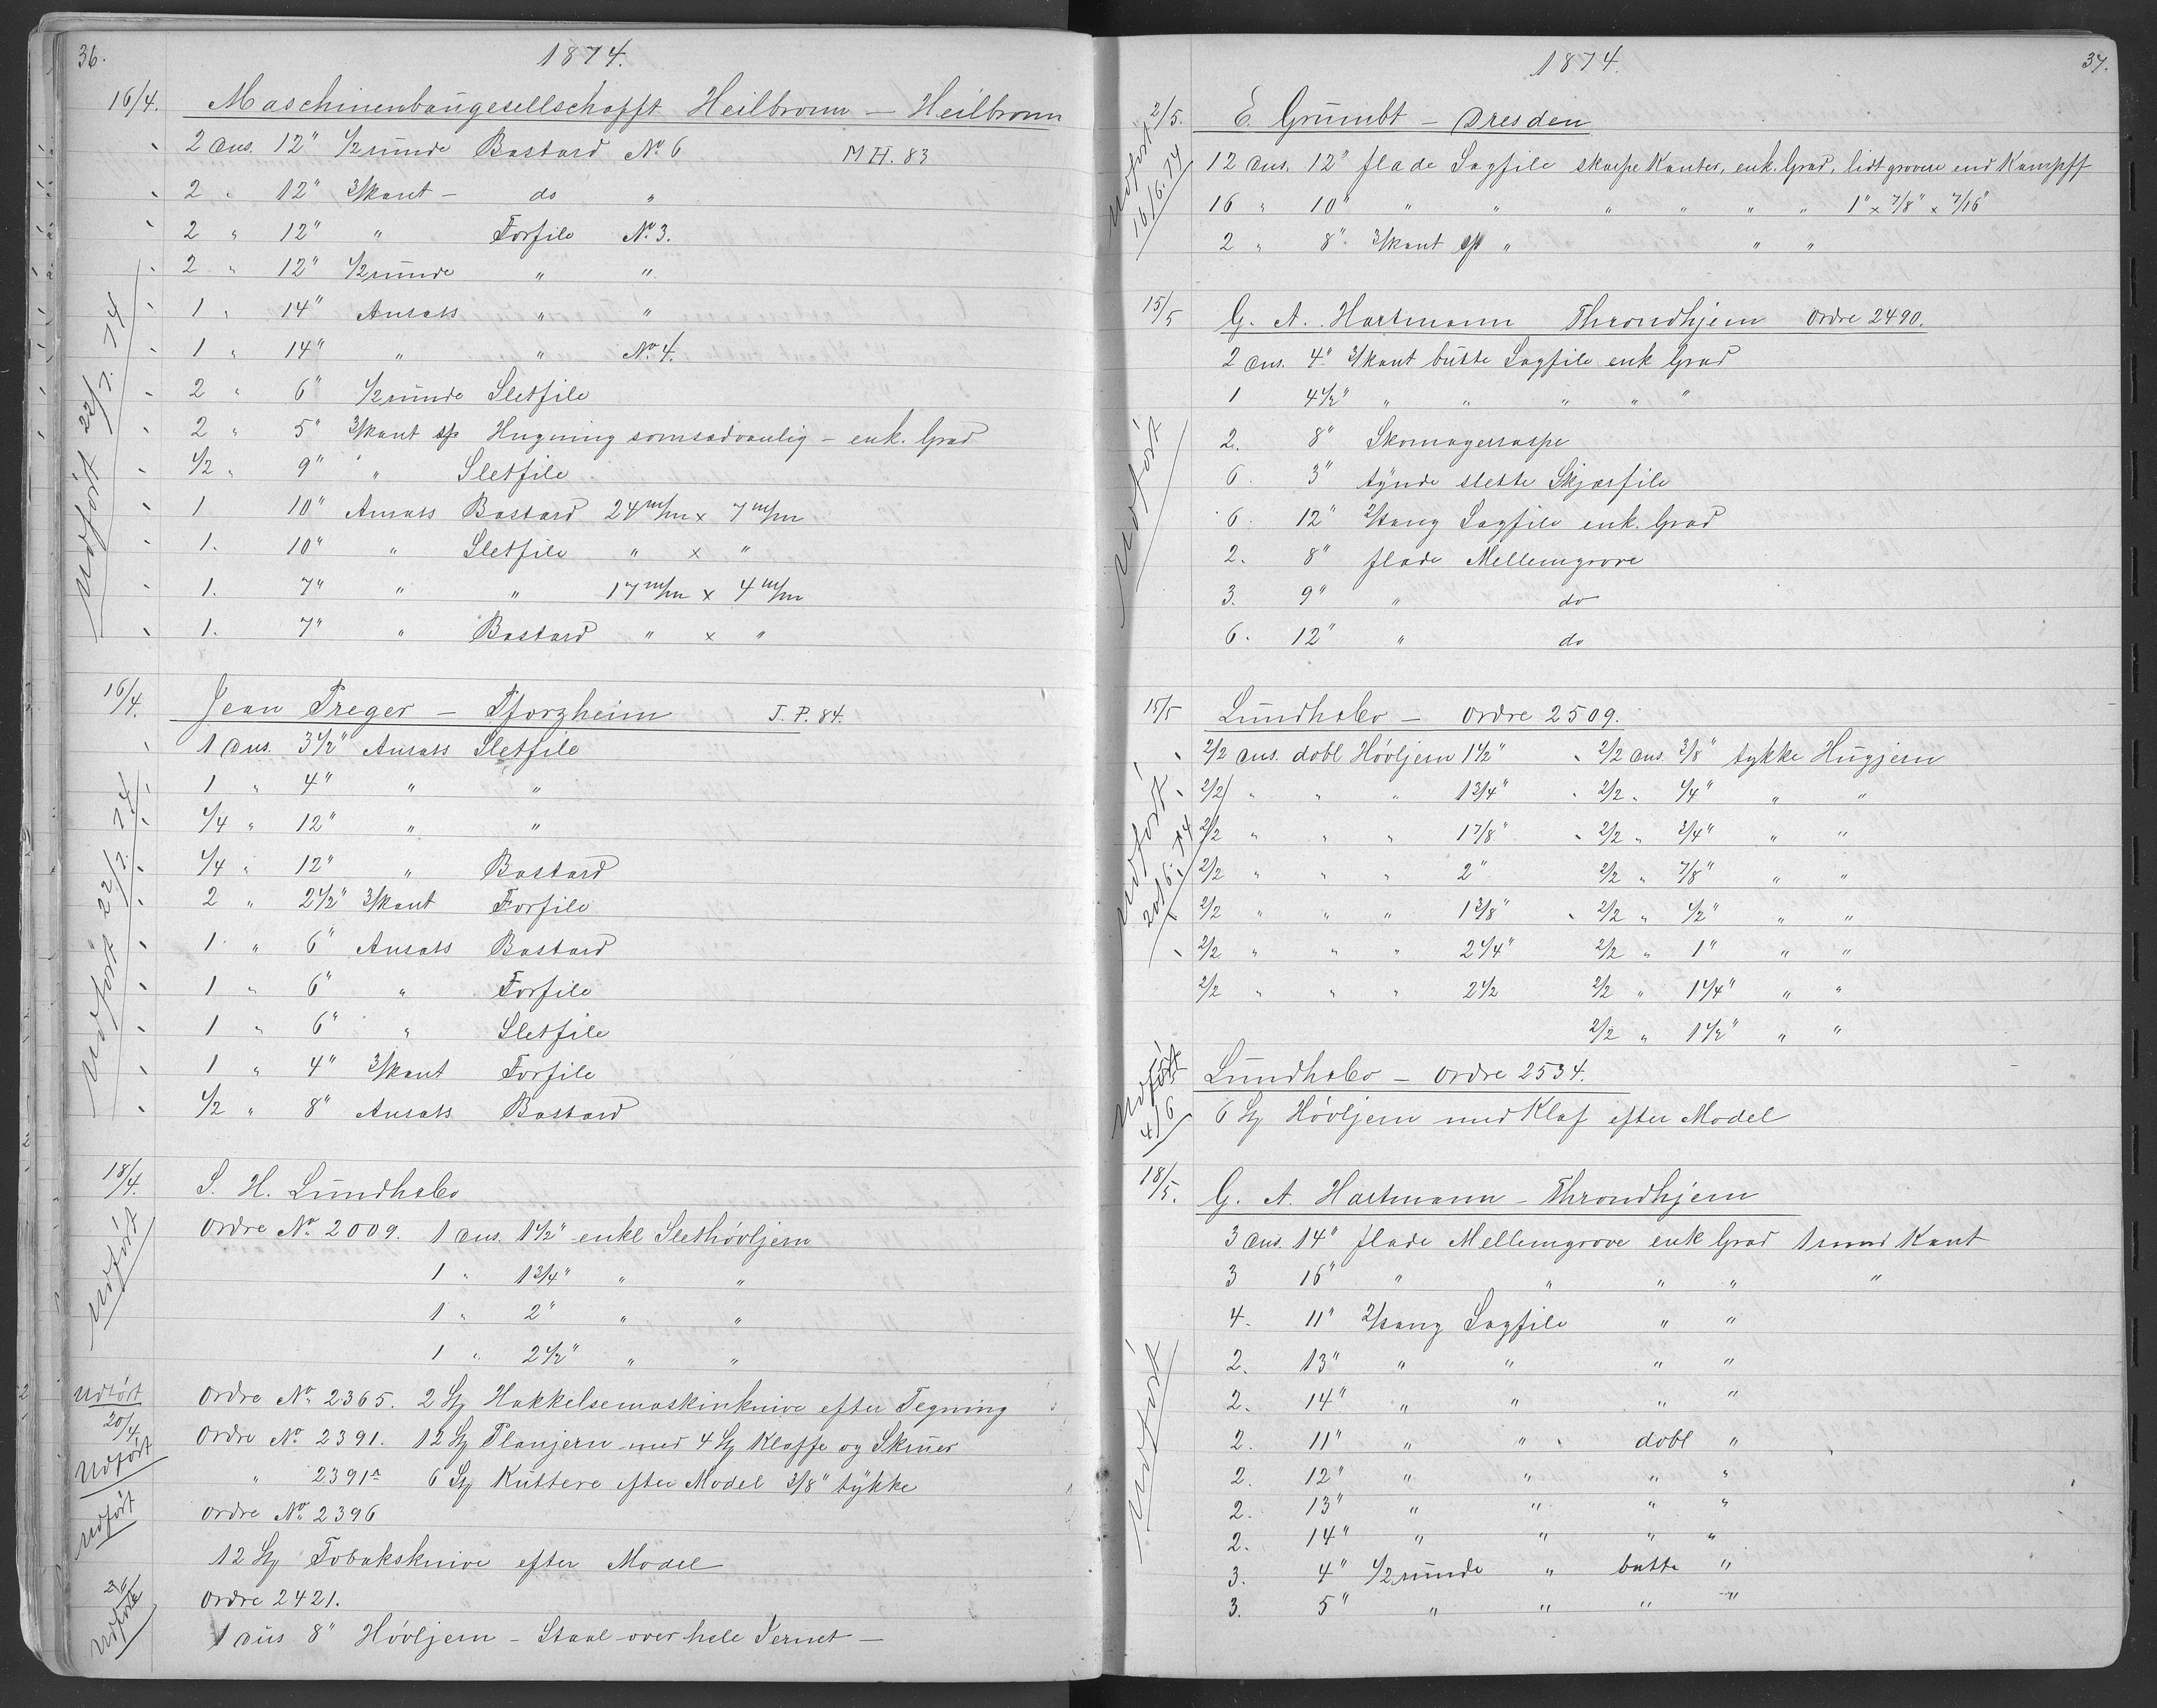 36.
1874.
16/4. Maschinenbaugesellschafft Heilbronn — Heilbronn
2 Dus. 12" 1/2 runde Bastard No. 6 M H. 83
2 " 12" 3/kant - do "
2 " 12" " Forfile No. 3.
2 " 12" 1/2 runde " "
1 " 14" Ansats " "
1 " 14" " " No. 4.
2 " 6" 1/2 runde Sletfile
2 " 5" 3/kant sp Hugning somsædvanlig - enk. Grad
1/2 " 9" " Sletfile
1 10" Ansats Bastard 24 m/m x 7 m/m
1. 10" " Sletfile " x "
1. 7" " " 17 m/m x 4 m/m
1. 7" " Bastard " x "
Udført 22/7. 74
16/4. Jean Preger — Pforzheim J. P. 84.
1 Dus. 3 1/2" Ansats Sletfile
1 " 4" " "
1/4 " 12" " "
1/4 " 12" " Bastard
2 " 2 1/2" 3/kant Forfile
1 " 6" Ansats Bastard
1 " 6" " Forfile
1 " 6" " Sletfile
1 " 4" 3/kant Forfile
1/2 " 8" Ansats Bastard
Udført 22/7. 74
18/4. S. H. Lundh
Ordre No. 2009. 1 Dus. 1 1/2" enkl Slethøvljern
1 " 1 3/4" " "
1 " 2" " "
1 " 2 1/2" " "
Udført
Udført Ordre No. 2365. 2 St Hakkelsemaskinknive efter Tegning
20/4. Ordre No. 2391. 12 St Planjern med 4 St Klaffe og Skruer
Udført " 2391a 6 St Kuttere efter Model 3/8" tykke
Udført Ordre No. 2396
12 St Tobaksknive efter Model
Ordre 2421.
Udført 1 Dus 8" Høvljern - Staal over hele Jernet —
1874.
37.
2/5. E. Grumbt — Dresden
12 Dus. 12" flade Sagfile skarpe Kanter, enk. Grad, lidt grovere end Kampff
16 " 10" " " " " " " 1" x 7/8" x 7/16"
2 " 8" 3/kant sp " " "
Udført 16/6. 74
15/5 G. A. Hartmann Throndhjem Ordre 2490.
2 Dus. 4" 3/kant butte Sagfile enk Grad
1 4 1/2" " " " " "
2. 8" Skomagerraspe
6. 3" tynde slette Skjærfile
6. 12" 2/tang Sagfile enk. Grad
2. 8" flade Mellemgrove
3. 9" " do
6. 12" " do
Udført
15/5 Lundh — Ordre 2509.
2/2 Dus. dobl Høvljern 1 1/2" 2/2 Dus. 3/8" tykke Hugjern
2/2 " " " 1 3/4" 2/2 " 1/4" " "
2/2 " " " 1 7/8" 2/2 " 3/4" " "
2/2 " " " 2" 2/2 " 7/8" " "
2/2 " " " 1 3/8" 2/2 " 1/2" " "
2/2 " " " 2 1/4" 2/2 " 1" " "
2/2 " " " 2 1/2 2/2 " 1 1/4" " "
2/2 " 1 1/2" " "
Udført 20/6. 74
Lundh — Ordre 2534.
6 St Høvljern med Klaf efter Model
Udført 4/6
18/5. G. A. Hartmann - Throndhjem
3 Dus. 14" flade Mellemgrove enk Grad 1 rund Kant
3 16" " " " " "
4. 11" 2/tang Sagfile " "
2. 13" " " " "
2. 14" " " " "
2. 11" " " dobl "
2. 12" " " " "
2. 13" " " " "
2. 14" " " " "
3. 4" 1/2 runde " butte "
3. 5" " " " "
Udført